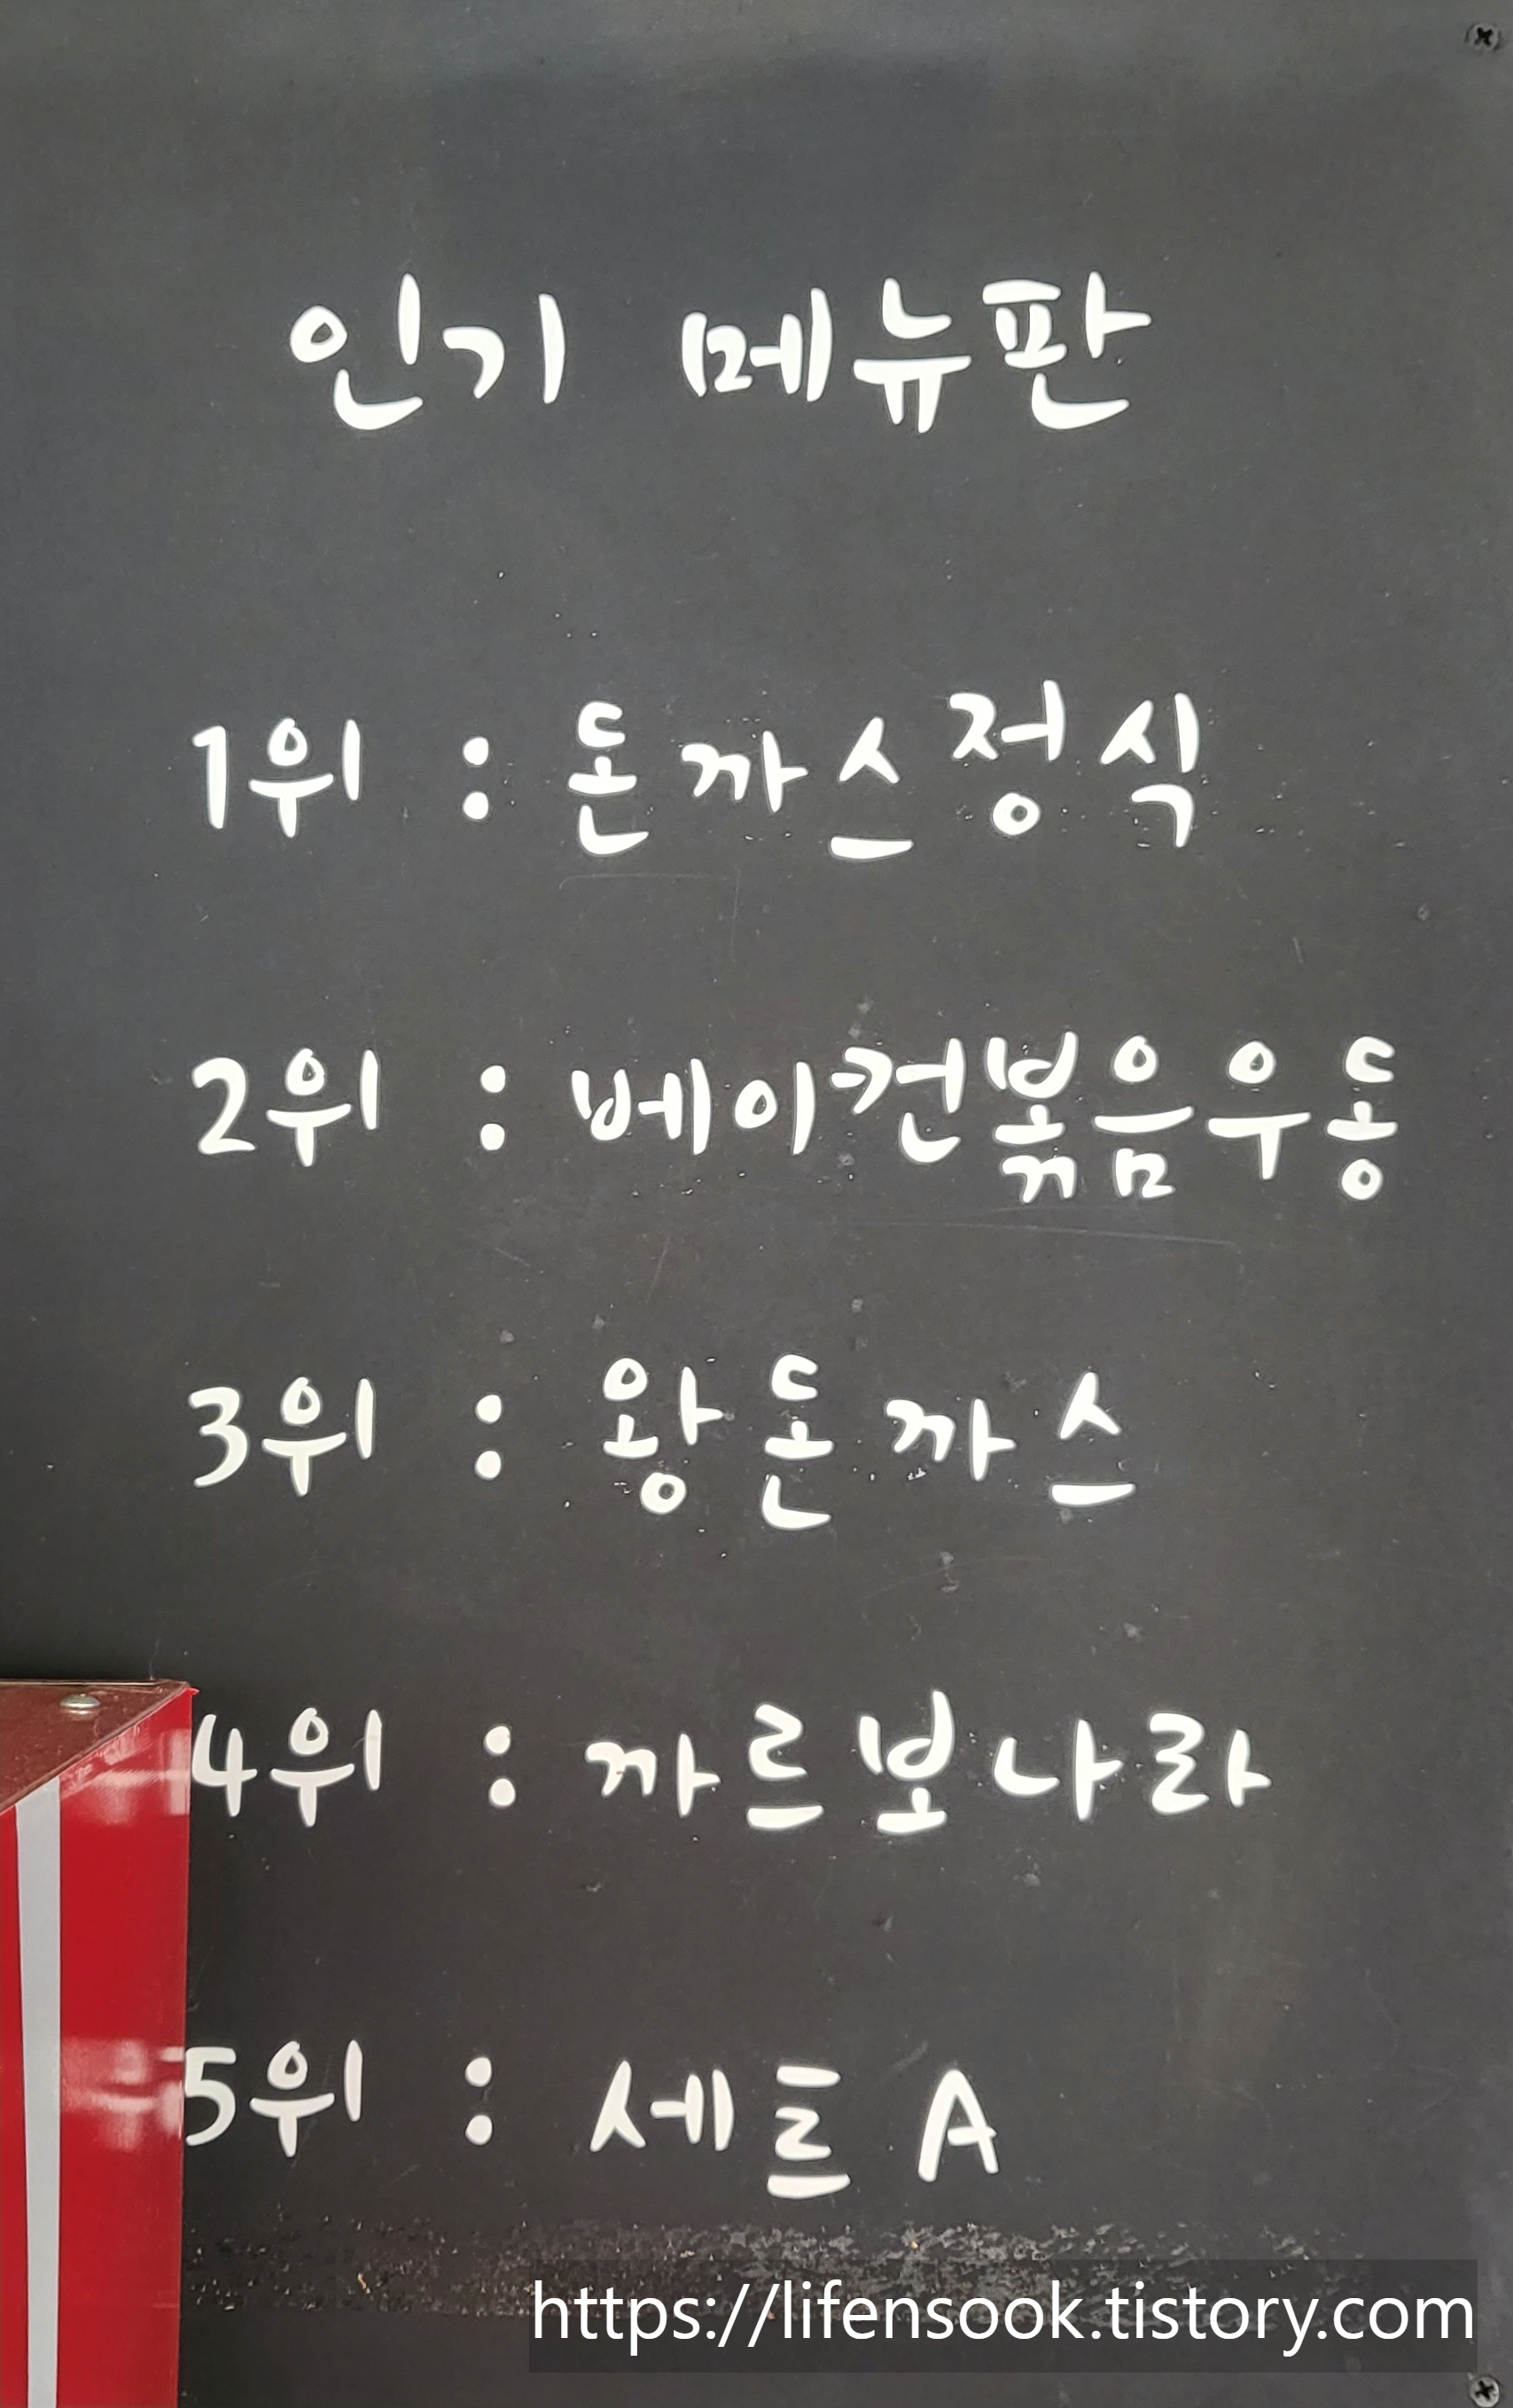 인기 메뉴판
1위 : 돈까스정식
2위 : 베이컨볶음우동
3위 : 왕돈까스
4위 : 까르보나라
5위 : 세트 A
https://lifensook.tistory.com